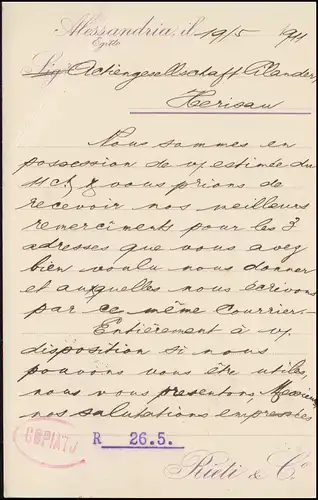 Alessandria, il 19/5 1911
Egitto
Sig. Actiengesellschaft Cilander,
Herisau
Nous sommes en
possession de v/ estimée du
11 ct & vous prions de
recevoir nos meilleurs
remerciments pour les 3
adresses que vous avez
bien voulu nous donner
et auxquelles nous écrivons
par ce même courrier.-
Entièrement à v/
disposition si nous
pouvons vous être utiles,
nous vous presentons, Messieurs,
nos salutations empressées
COPIATO
R 26.5.
& Co